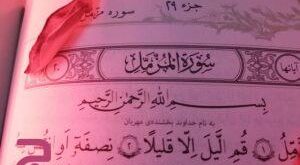 جزء ۲۹ سوره مزمل
سُورَةُ المُزَّمِّلِ
آیاتها ۲۰
بِسْمِ اللَّهِ الرَّحْمٰنِ الرَّحِيمِ
به نام خداوند بخشنده‌ی مهربان
﴿١﴾ قُمِ الَّيلَ اِلّا قَليلًا ﴿٢﴾ نِصفَهُ اَوِ